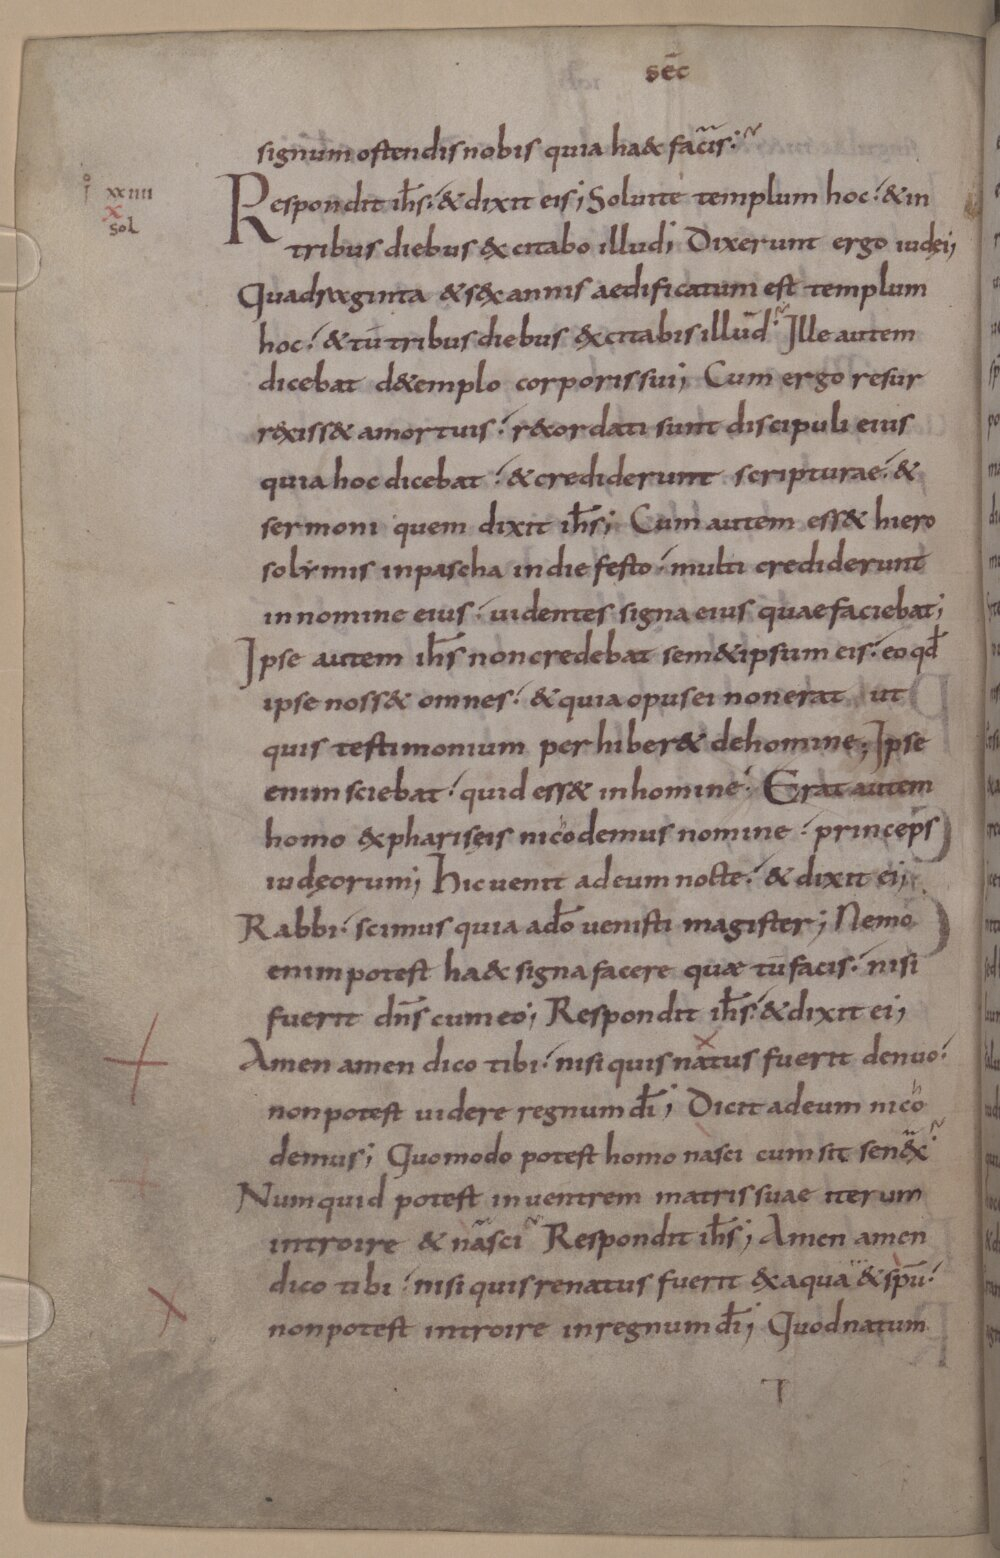 sēc
signum ostendis nobis quia ha& facis·
i xxiiii
x
sol
Respondit ih̄s· & dixit eis; Soluite templum hoc· & in
tribus diebus &citabo illud; Dixerunt ergo iudęi;
Quadraginta & s&x annis aedificatum est templum
hoc· & tū tribus diebus &xcitabis illud· Ille autem
dicebat d&emplo corporis sui; Cum ergo resur
r&xiss& amortuis· r&ordati sunt discipuli eius
quia hoc dicebat· & crediderunt scripturae· &
sermoni quem dixit ih̄s; Cum autem ess& hiero
solymis inpascha in die festo· multi crediderunt
in nomine eius· uidentes signa eius quae faciebat;
Ipse autem ih̄s non credebat sem&ipsum eis· eo qd̄
ipse noss& omnes· & quia opus ei non erat ut
quis testimonium perhiber& dehomine; Ipse
enim sciebat· quid ess& inhomine· Erat autem
homo &xpharisęis nicodemus nomine· princeps
iudęorum; Hic uenit adeum nocte· & dixit ei;
Rabbi· scimus quia ad̄o uenisti magister; Nemo
enim potest ha& signa facere quae tū facis· nisi
fuerit dn̄s cum eo; Respondit ih̄s· & dixit ei;
Amen amen dico tibi· nisi quis natus fuerit denuo·
non potest uidere regnum d̄i; Dicit adeum nico
demus; Quomodo potest homo nasci cum sit sen&x·
Numquid potest inuentrem matris suae iterum
introire & nasci Respondit ih̄s; Amen amen
dico tibi· nisi quis renatus fuerit &xaqua & spū·
non potest introire inregnum d̄i; Quod natum